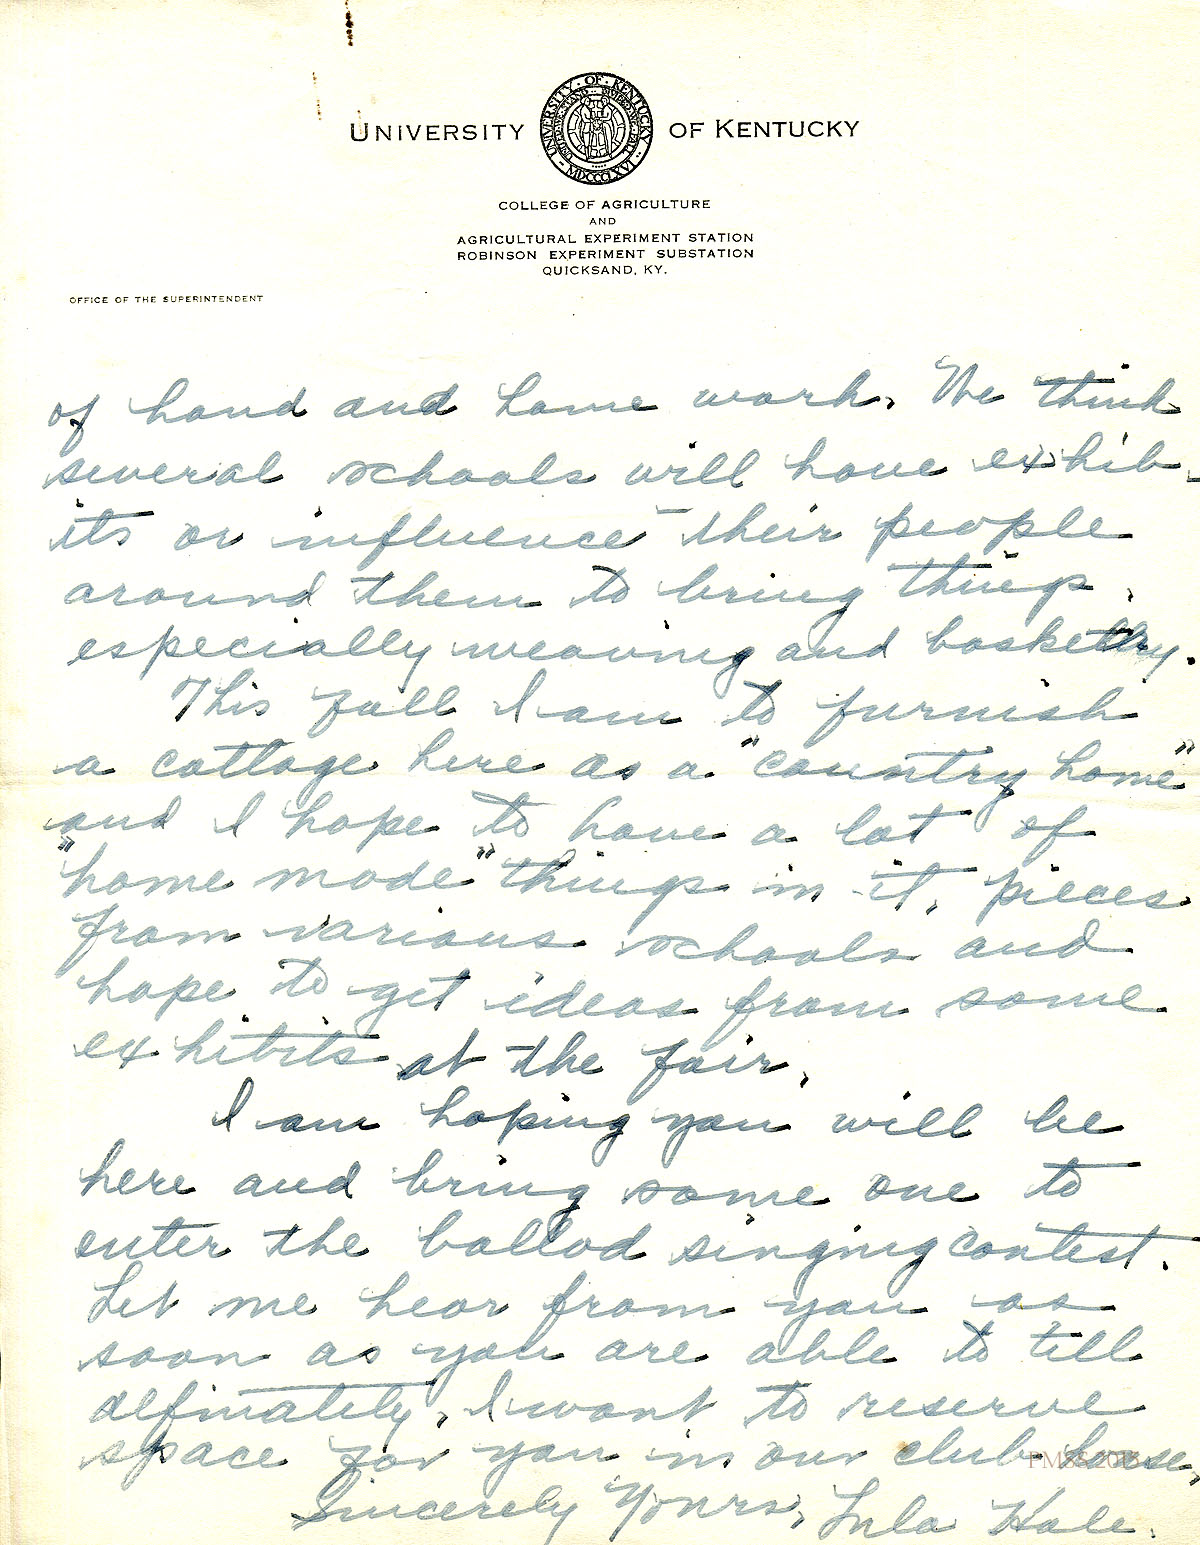 UNIVERSITY OF KENTUCKY
UNIVERSITY · OF · KENTUCKY
UNITED WE STAND DIVIDED WE FALL
MDCCCLXVI
COLLEGE OF AGRICULTURE
AND
AGRICULTURAL EXPERIMENT STATION
ROBINSON EXPERIMENT SUBSTATION
QUICKSAND, KY.
OFFICE OF THE SUPERINTENDENT
of hand and home work. We think
several schools will have exhib-
its or influence their people
around them to bring things,
especially weaving and basketry.
This fall I am to furnish
a cottage here as a "country home"
and I hope to have a lot of
"home made" things in it, pieces
from various schools and
hope to get ideas from some
exhibits at the fair.
I am hoping you will be
here and bring some one to
enter the ballad singing contest.
Let me hear from you as
soon as you are able to tell
definately. I want to reserve
space for you in our club house,
PMSS 2018
Sincerely Yours, Lula Hale.